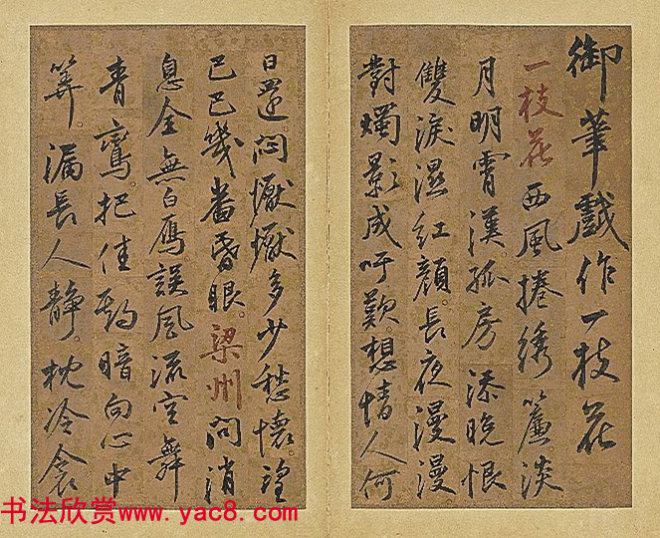 御筆戲作一枝花
一枝花西風捲綉簾淡
月明霄漢孤房添晚恨
雙淚濕紅顏長夜漫漫
對燭影成吁歎想情人何
日還悶懨懨多少愁懷望
巴巴幾番昏眼梁州問消
息全無白鴈誤風流空舞
青鸞把佳期暗向心中
筭漏長人靜枕冷衾
书法欣赏www.yac8.com